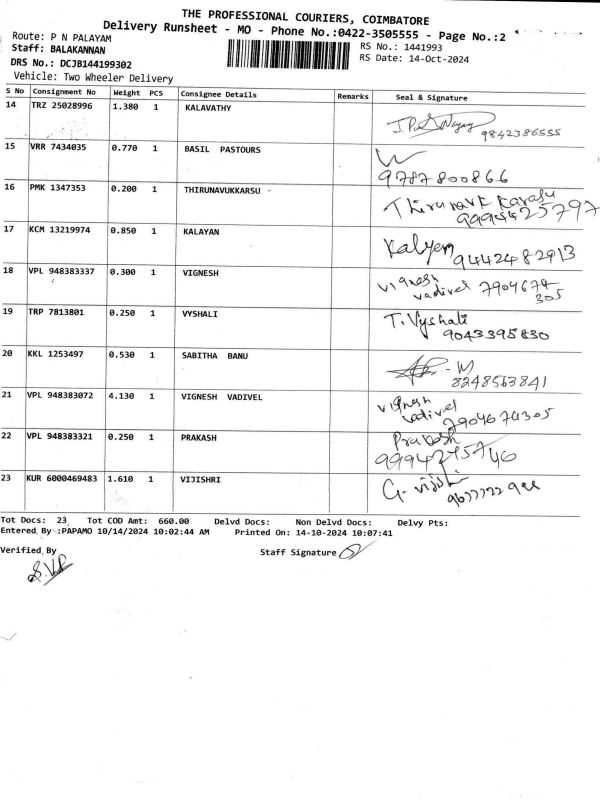 THE PROFESSIONAL COURIERS, COIMBATORE
Delivery Runsheet - MO - Phone No.:0422-3505555 - Page No.:2
Route: P N PALAYAM
RS No.: 1441993
Staff: BALAKANNAN
RS Date: 14-Oct-2024
DRS No.: DCJB144199302
Vehicle: Two Wheeler Delivery
S No Consignment No Weight PCS Consignee Details Remarks Seal & Signature
14 TRZ 25028996 1.380 1 KALAVATHY
9842386555
15 VRR 7434035 0.770 1 BASIL PASTOURS
9787800866
16 PMK 1347353 0.200 1 THIRUNAVUKKARSU -
Thirunavk karasu
9994425797
17 KCM 13219974 0.850 1 KALAYAN
Kalyan 9442482913
18 VPL 948383337 0.300 1 VIGNESH
vignesh
vadivel 7904674
305
19 TRP 7813801 0.250 1 VYSHALI
T. Vyshali
9043395830
20 KKL 1253497 0.530 1 SABITHA BANU
8248563841
21 VPL 948383072 4.130 1 VIGNESH VADIVEL
vignesh
vadivel
7904674305
22 VPL 948383321 0.250 1 PRAKASH
Prakash
23 KUR 6000469483 1.610 1 VIJISHRI
G. viji
Tot Docs: 23 Tot COD Amt: 660.00 Delvd Docs: Non Delvd Docs: Delvy Pts:
Entered By :PAPAMO 10/14/2024 10:02:44 AM Printed On: 14-10-2024 10:07:41
Verified By
Staff Signature